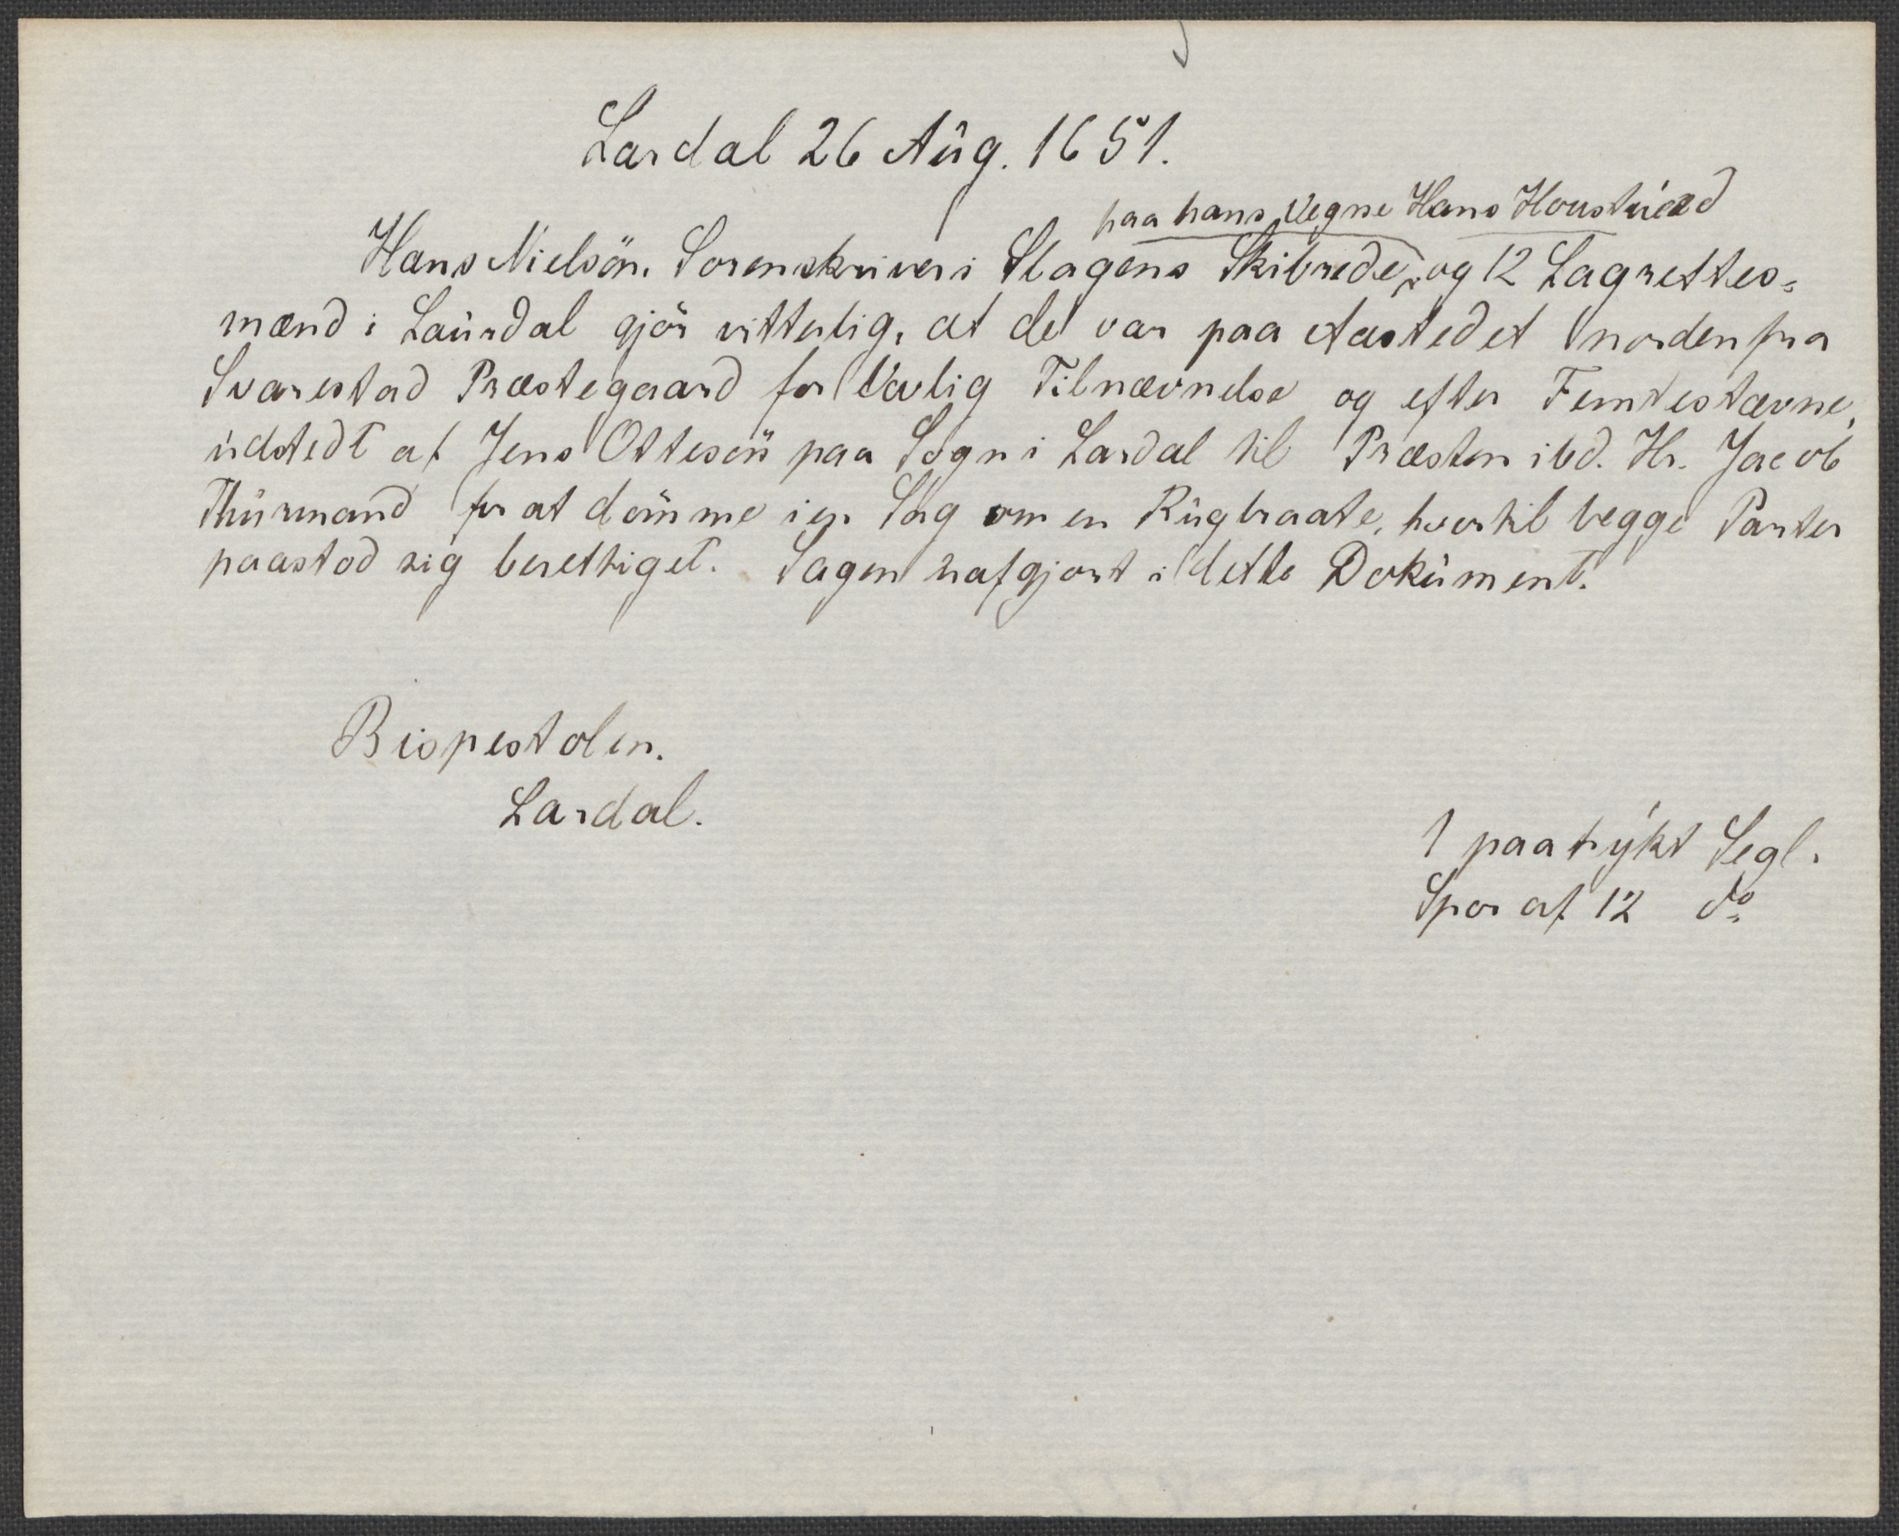 Lardal 26 Aug. 1651.
paa hans Vegne Hans Houstvæd
Hans Nielsön, Sorenskriver i Slagens Skibrede, og 12 Lagrettes=
mænd i Laurdal gjör vitterlig, at de var paa Aastedet norden fra
Svarestad Præstegaard for lovlig Tilnævnelse og efter Femtestævne,
udstedt af Jens Ottesön paa Sogn i Lardal til Præsten ibd. Hr. Jacob
Thurmand for at dömme i en Sag om en Rugbraate, hvortil begge Parter
paastod sig berettiget. Sagen uafgjort i dette Dokument.
Bispestolen.
Lardal.
1 paatrykt Segl.
Spor af 12 do